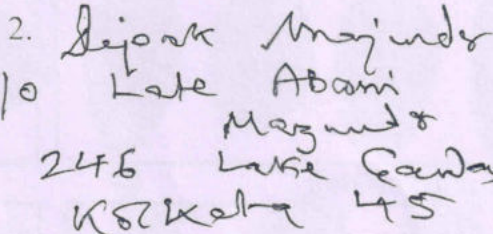 2. Dipak Majumdar
/o Late Abani
Mazumdar
246 Lake Gardens
Kolkata 45